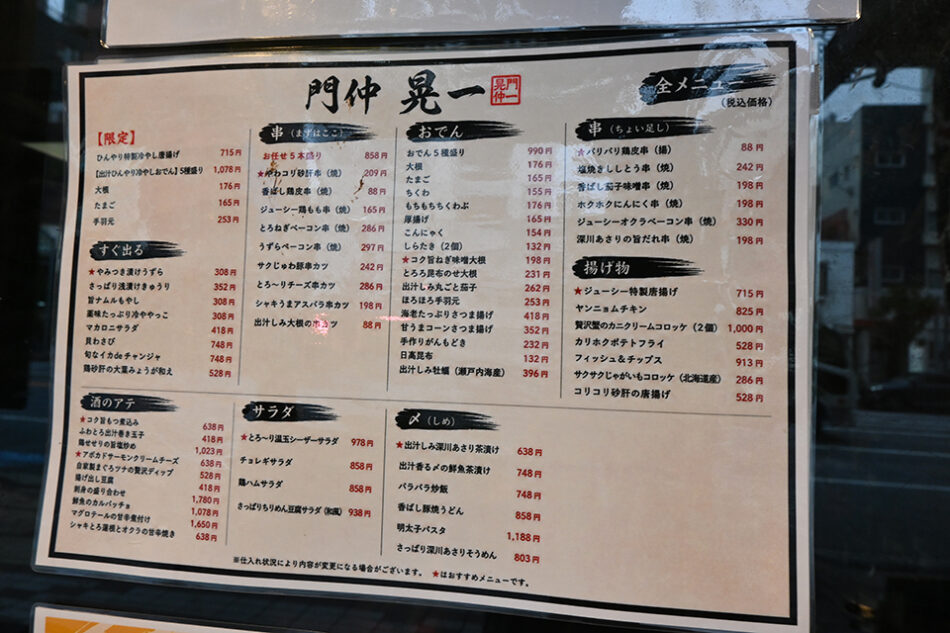 門仲 晃一
門一
晃仲
全メニュー
(税込価格)
【限定】
ひんやり特製冷やし唐揚げ 715円
【出汁ひんやり冷やしおでん】5種盛り 1,078円
大根 176円
たまご 165円
手羽元 253円
すぐ出る
★やみつき漬けうずら 308円
さっぱり浅漬けきゅうり 352円
旨ナムルもやし 308円
薬味たっぷり冷ややっこ 308円
マカロニサラダ 418円
貝わさび 748円
旬なイカdeチャンジャ 748円
鶏砂肝の大葉みょうが和え 528円
串 (まずはここ)
お任せ5本盛り 858円
★やわコリ砂肝串(焼) 209円
香ばし鶏皮串(焼) 88円
ジューシー鶏もも串(焼) 165円
とろねぎベーコン串(焼) 286円
うずらベーコン串(焼) 297円
サクじゅわ豚串カツ 242円
とろ〜りチーズ串カツ 286円
シャキうまアスパラ串カツ 198円
出汁しみ大根の串カツ 88円
おでん
おでん5種盛り 990円
大根 176円
たまご 165円
ちくわ 155円
もちもちちくわぶ 176円
厚揚げ 165円
こんにゃく 154円
しらたき(2個) 132円
★コク旨ねぎ味噌大根 198円
とろろ昆布のせ大根 231円
出汁しみ丸ごと茄子 262円
ほろほろ手羽元 253円
海老たっぷりさつま揚げ 418円
甘うまコーンさつま揚げ 352円
手作りがんもどき 232円
日高昆布 132円
出汁しみ牡蠣(瀬戸内海産) 396円
串 (ちょい足し)
★パリパリ鶏皮串(揚) 88円
塩焼きししとう串(焼) 242円
香ばし茄子味噌串(焼) 198円
ホクホクにんにく串(焼) 198円
ジューシーオクラベーコン串(焼) 330円
深川あさりの旨だれ串(焼) 198円
揚げ物
★ジューシー特製唐揚げ 715円
ヤンニョムチキン 825円
贅沢蟹のカニクリームコロッケ(2個) 1,000円
カリホクポテトフライ 528円
フィッシュ&チップス 913円
サクサクじゃがいもコロッケ(北海道産) 286円
コリコリ砂肝の唐揚げ 528円
酒のアテ
★コク旨もつ煮込み 638円
ふわとろ出汁巻き玉子 418円
鶏せせりの旨塩炒め 1,023円
★アボカドサーモンクリームチーズ 638円
自家製まぐろツナの贅沢ディップ 528円
揚げ出し豆腐 418円
刺身の盛り合わせ 1,780円
鮮魚のカルパッチョ 1,078円
マグロテールの甘辛煮付け 1,650円
シャキとろ蓮根とオクラの甘辛焼き 638円
サラダ
★とろ〜り温玉シーザーサラダ 978円
チョレギサラダ 858円
鶏ハムサラダ 858円
さっぱりちりめん豆腐サラダ(和風) 938円
〆 (しめ)
★出汁しみ深川あさり茶漬け 638円
出汁香る〆の鮮魚茶漬け 748円
パラパラ炒飯 748円
香ばし豚焼うどん 858円
明太子パスタ 1,188円
さっぱり深川あさりそうめん 803円
※仕入れ状況により内容が変更になる場合がございます。 ★はおすすめメニューです。